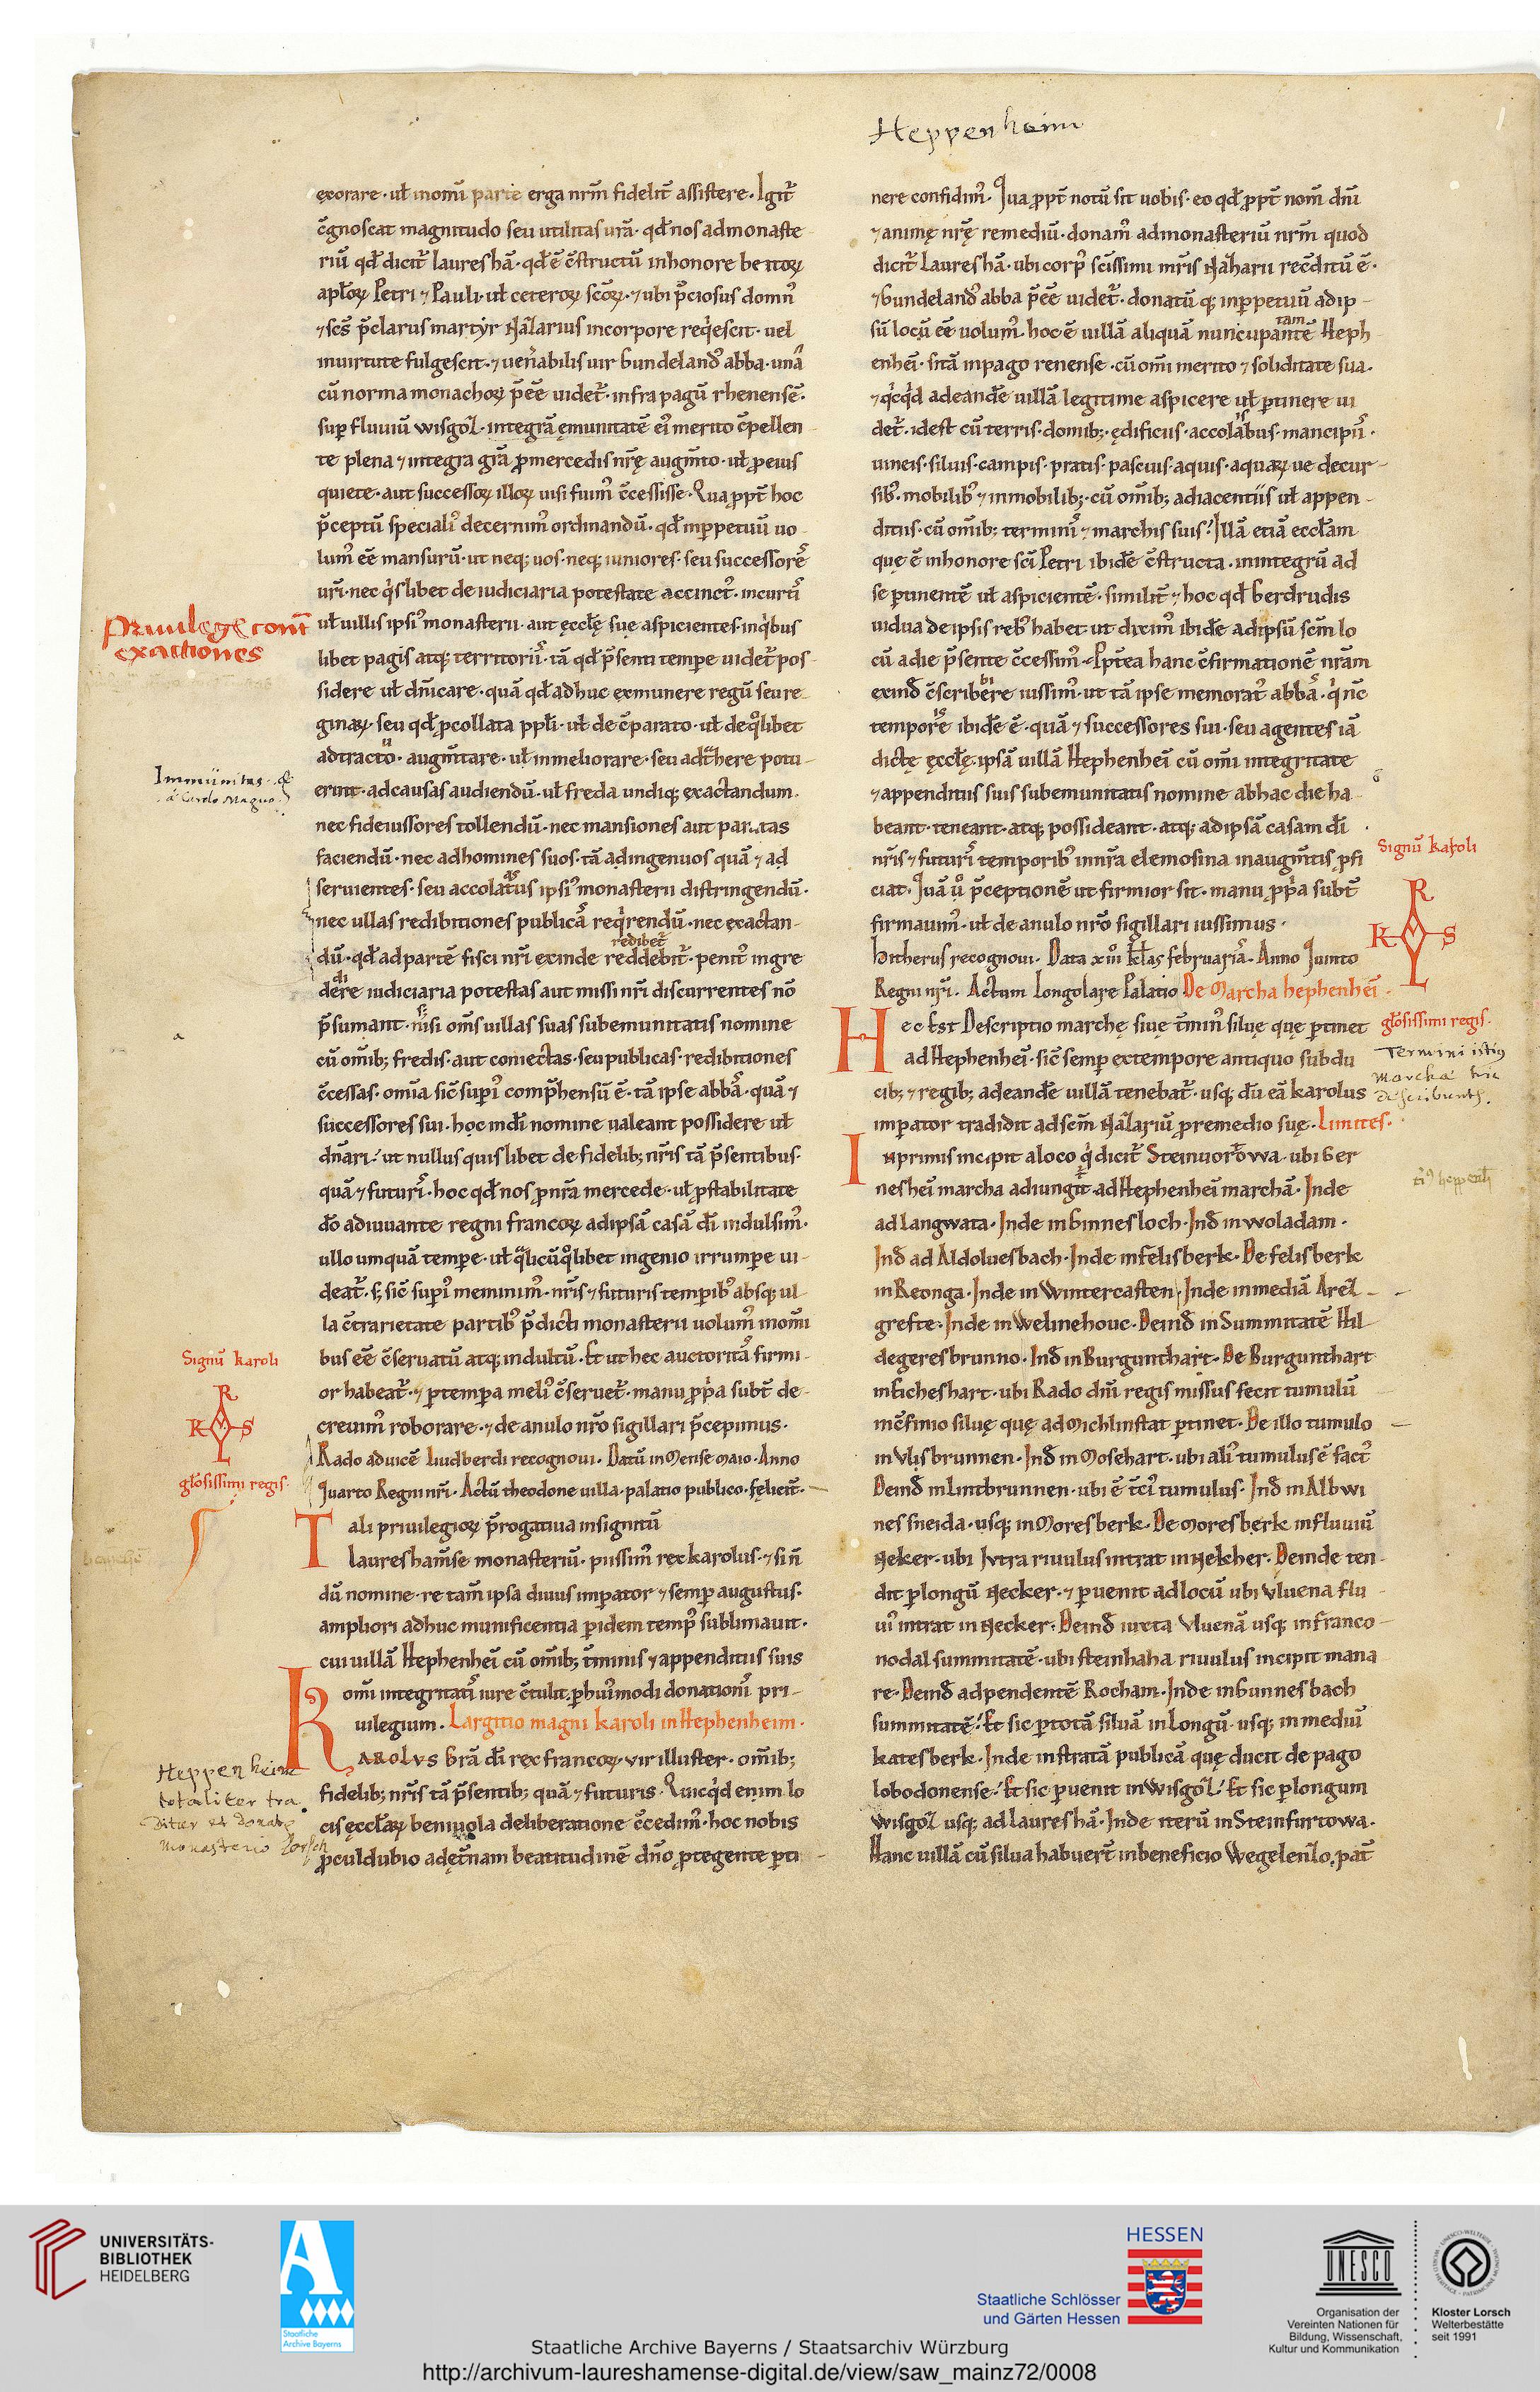 Heppenheim
exorare · ut̄ inom̄i parte erga nr̄m fidelit̄ assistere. Igit̄
c̄gnoscat magnitudo seu utilitas ur̄a · qd̄ nos admonaste
riū qd̄ dicit̄ laureshā · qd̄ ē c̄structū inhonore beatoꝝ
apl̄oꝝ Petri ⁊ Pauli · ut̄ ceteroꝝ sc̄oꝝ · ⁊ ubi p̄ciosus domn᾽
⁊ sc̄s p̄clarus martyr Naz̄arius incorpore reqͥescit · uel
inuirtute fulgescit · ⁊ uen̄abilis uir Gundeland᾽ abba · unā
cū norma monachoꝝ p̄ēē uidet̄ · infra pagū rhenensē ·
sup̄ fluuiū Wisgoz̄ · integrā ęmunitatē ei᾽ merito c̄pellen
te plena ⁊ integra gr̄a ꝓmercedis nr̄ę augm̄to · ut̄ ꝓeius
quiete · aut successoꝝ illoꝝ uisi fuim᾽ c̄cessisse · Qua ꝓpt̄ hoc
p̄ceptū speciali᾽ decernim᾽ ordinandū · qd̄ inꝑpetuū uo
lum᾽ ēē mansurū · ut neq; uos · neq; iuniores · seu successorē᾽
ur̄i · nec qͥslibet de iudiciaria potestate accinct᾽ · incurti᾽
ut̄ uillis ipsi᾽ monasterii · aut ęccl̄ę suę aspicientes · inqͥbus
libet pagis atq; territorii᾽ · tā qd̄ p̄senti tempe uidet̄ pos
sidere ut̄ dn̄icare · quā qd̄ adhuc exmunere regū seu re
ginaꝝ · seu qd̄ ꝓcollata ppl̄i · ut̄ de c̄parato · ut̄ de qͦlibet
adtracto · augm̄tare · ut̄ inmeliorare · seu adt̄here potu
erint · adcausas audiendū · ut̄ freda undiq; exactandum ·
nec fideiussores tollendū · nec mansiones aut paratas
faciendū · nec adhomines suos · tā adingenuos quā ⁊ ad
seruientes · seu accolatus ipsi᾽ monasterii distringendū ·
nec ullas redibitiones publicā᾽ reqͥrendū · nec exactan
redibet̄
dū · qd̄ adpartē fisci nr̄i exinde reddebit̄ · penit᾽ ingre
dere iudiciaria potestas aut missi nr̄i discurrentes nō
p̄sumant · nisi om̄s uillas suas subemunitatis nomine
cū om̄ib; fredis · aut coniectas · seu publicas · redibitiones
c̄cessas · omīa sic̄ supi᾽ comp̄hensū ē · tā ipse abbā᾽ · quā ⁊
successores sui · hoc indi nomine ualeant possidere ut̄
dn̄ari · ut nullus quislibet de fidelib; nr̄is tā p̄sentibus
quā ⁊ futuri᾽ · hoc qd̄ nos ꝓnr̄a mercede · ut̄ ꝓstabilitate
dō adiuuante regni francoꝝ adipsā casā dī indulsim᾽ ·
ullo umquā tempe · ut̄ qͣlicūqͦlibet ingenio irrumpe ui
deat̄ · s; sic̄ supi᾽ meminim᾽ · nr̄is ⁊ futuris tempib᾽ absq; ul
la c̄trarietate partib᾽ p̄dicti monasterii uolum᾽ inom̄i
bus ēē c̄seruatū atq; indultū · Et ut hec auctoritā᾽ firmi
or habeat̄ · ⁊ ꝑtempa meli᾽ c̄seruet̄ · manu ꝓp̄a subt̄ de
creuim᾽ roborare · ⁊ de anulo nr̄o sigillari p̄cepimus ·
Rado aduicē Liudberdi recognoui · Datū in Mense Maio · Anno
Quarto Regni nr̄i · Actū theodone uilla · palatio publico · fęlicit̄ ·
Tali priuilegioꝝ p̄rogatiua insignitū
lauresham̄se monasteriū · piissim᾽ rex karolus · ⁊ si n̄
dū nomine · re tam̄ ipsa diuus imperator ⁊ semp̄ augustus ·
ampliori adhuc munificentia ꝑidem temp᾽ sublimauit ·
cui uillā Hephenhei᾽ cū om̄ib; t̄minis ⁊ appenditiis suis
om̄i integritati᾽ iure c̄tulit · ꝑhui᾽modi donationi᾽ pri
uilegium · Largitio magni karoli in Hephenheim ·
Karolus Gr̄a dī rex francoꝝ · vir illuster · om̄ib;
fidelib; nr̄is tā p̄sentib; quā ⁊ futuris · Quicqͥd enim lo
cis ęccl̄aꝝ beniuola deliberatione c̄cedim᾽ · hoc nobis
ꝓculdubio adęt̄nam beatitudinē dn̄o ꝓtegente ꝑti
Priuilege cont̄
exactiones
Immunitas
a Carolo Magno
Signū karoli
K R S L
gl̄osissimi regis ·
Heppenheim
totaliter tra
ditur et donatr
monasterio Lorsch
nere confidim᾽ · Qua ꝓpt̄ notū sit uobis · eo qd̄ ꝓpt̄ nom̄ dn̄i
⁊ animę nr̄ę remediū · donam᾽ admonasteriū nr̄m quod
dicit̄ Laureshā · ubi corp᾽ sc̄issimi mr̄is Naz̄harii rec̄ditū ē ·
⁊ Gundeland᾽ abba p̄ēē uidet̄ · donatū q; inꝑpetuū adip
sū locū ēē uolum᾽ · hoc ē uillā aliquā nuncupantē Heph
tam
enhei᾽ · sitā inpago renense · cū om̄i merito ⁊ soliditate sua ·
⁊ qͥcqͥd adeandē uillā legitime aspicere ut̄ ꝑtinere ui
det̄ · idest cū terris · domib; · ędificiis · accolabus · mancipii᾽ ·
uineis · siluis · campis · pratis · pascuis · aquis · aquaꝝ ue decur
sib᾽ · mobilib᾽ ⁊ inmobilib; · cū om̄ib; adiacentiis ut̄ appen
ditiis · cū om̄ib; termini᾽ ⁊ marchis suis · Illā etiā eccl̄am
quę ē inhonore sc̄i Petri ibidē c̄structa · inintegrū ad
se ꝑtinentē ut̄ aspicientē · similit̄ ⁊ hoc qd̄ berdrudis
uidua de ipsis reb᾽ habet ut dixim᾽ ibidē adipsū sc̄m lo
cū adie p̄sente c̄cessim᾽ · Ꝓpt̄ea hanc c̄firmationē nr̄am
exind̄ c̄scribere iussim᾽ · ut tā ipse memorat᾽ abbā᾽ · qͥ nc̄
tempore ibidē ē · quā ⁊ successores sui · seu agentes iā
dictę ęccl̄ę · ipsā uillā Hephenhei᾽ cū om̄i integritate
⁊ appenditiis suis subemunitatis nomine abhac die ha
beant · teneant · atq; possideant · atq; adipsā casam dī
nr̄is ⁊ futuri᾽ temporib᾽ innr̄a elemosina inaugm̄tis ꝓfi
ciat · Quā uͦ p̄ceptionē ut firmior sit · manu ꝓp̄a subt̄
firmauim᾽ · ut̄ de anulo nr̄o sigillari iussimus ·
hitherus recognoui · Data xiii kl̄as februariā᾽ · Anno Quinto
Regni nr̄i · Actum Longolare Palatio De Marcha hephenhei᾽ ·
Hec Est Descriptio marchę siuę t̄min᾽ siluę quę ꝑtinet
ad Hephenhei᾽ · sic̄ semp̄ extempore antiquo subdu
cib; ⁊ regib; adeandē uillā tenebat̄ · usq; dū eā karolus
imperator tradidit adsc̄m Naz̄ariū ꝓremedio suę · Limites ·
Inprimis incipit aloco qͥ dicit̄ Steinuorᵗowa · ubi Ger
neshei᾽ marcha adiungit ad Hephenhei᾽ marchā · Inde
ad Langwata · Inde in Ginnesloch · Ind̄ in woladam ·
Ind̄ ad Aldoluesbach · Inde in felisberk · De felisberk
in Reonga · Inde in Wintercasten · Inde in mediā Arez̄
grefte · Inde in Welinehouc · Deind̄ in Summitatē Hil
degeresbrunno · Ind̄ in Burgunthart · De Burgunthart
in Eicheshart · ubi Rado dn̄i regis missus fecit tumulū
inc̄finio siluę quę ad Michlinstat ꝑtinet · De illo tumulo
in Vlisbrunnen · Ind̄ in Mosehart · ubi ali᾽ tumulus ē fact᾽
Deind̄ in Lintbrunnen · ubi ē t̄ci᾽ tumulus · Ind̄ in Albwi
nessneida · usq; in Moresberk · De Moresberk in fluuiū
Neker · ubi Ivtra riuulus intrat in Nekher · Deinde ten
dit ꝑlongū Necker · ⁊ ꝑuenit adlocū ubi Vluena flu
ui᾽ intrat in Necker · Deind̄ iuxta Vluenā usq; in franco
nodal summitatē · ubi steinhaha riuulus incipit mana
re · Deind̄ adpendentē Rocham · Inde in Gunnesbach
summitatē · Et sic ꝑtotā siluā in longū · usq; in mediū
katesberk · Inde instratā publicā quę ducit de pago
lobodonense · Et sic ꝑuenit in Wisgoz̄ · Et sic ꝑlongum
Wisgoz̄ usq; ad laureshā · Inde iterū in Steinfurtowa ·
Hanc uillā cū silua habuer̄t inbeneficio Wegelenz̄o, pat̄
Signū karoli
K R S L
gl̄osissimi regis ·
Termini istius
marcha hic
describuntr.
UNIVERSITÄTS-
BIBLIOTHEK
HEIDELBERG
Staatliche
Archive Bayerns
HESSEN
Staatliche Schlösser
und Gärten Hessen
UNESCO
Organisation der
Vereinten Nationen für
Bildung, Wissenschaft,
Kultur und Kommunikation
Kloster Lorsch
Welterbestätte
seit 1991
Staatliche Archive Bayerns / Staatsarchiv Würzburg
http://archivum-laureshamense-digital.de/view/saw_mainz72/0008